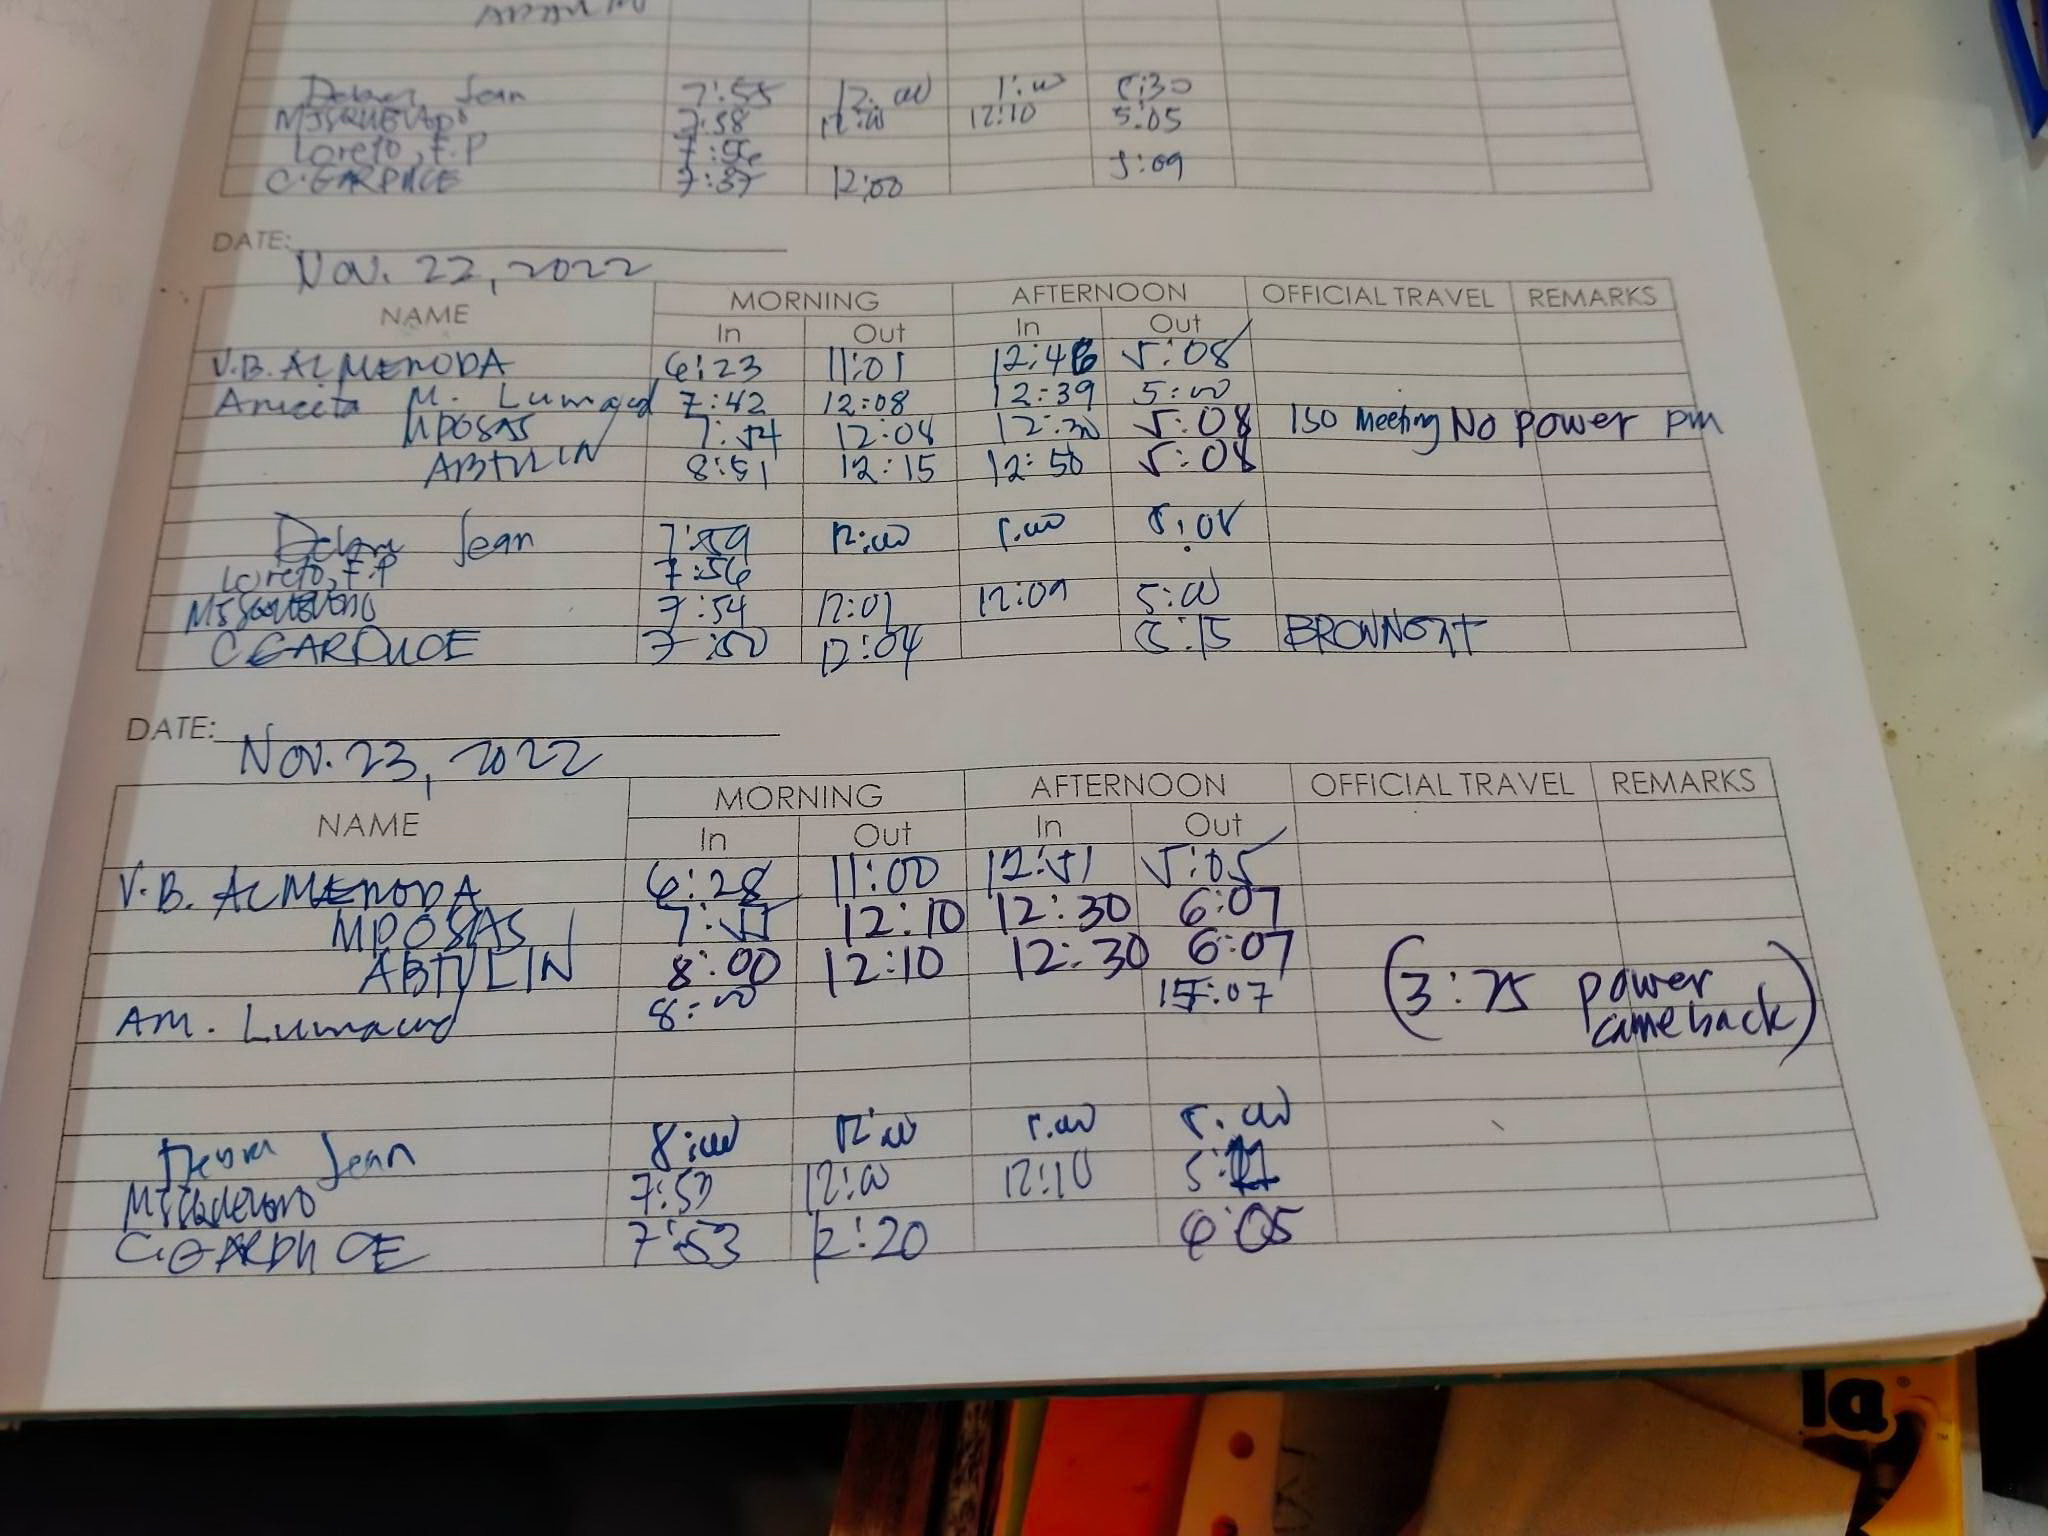 Jean 7:55 12:00 1:00 5:30
7:58 12:00 12:10 5:05
Loreto, F.P 7:56
7:37 12:00 5:09
DATE:
Nov. 22, 2022
NAME MORNING AFTERNOON OFFICIAL TRAVEL REMARKS
In Out In Out
V.B. ALMENODA 6:23 11:01 12:46 5:08
Aniceta M. Lumacad 7:42 12:08 12:39 5:00
MPOSAS 7:54 12:08 12:30 5:08 ISO Meeting No power pm
ABTULIN 8:51 12:15 12:50 5:08
Jean 7:59 12:00 1:00 5:08
Loreto, F.P 7:56
7:54 12:07 12:09 5:00
7:50 12:04 5:15 BROWNOUT
DATE:
Nov. 23, 2022
NAME MORNING AFTERNOON OFFICIAL TRAVEL REMARKS
In Out In Out
V.B. ALMENODA 6:28 11:00 12:51 5:05
MPOSAS 7:55 12:10 12:30 6:07
ABTULIN 8:00 12:10 12:30 6:07
AM. Lumacad 8:00 5:07 (3:25 power
came back)
Debra Jean 8:00 12:00 1:00 5:00
7:53 12:00 12:10
7:53 12:20 6:05
la